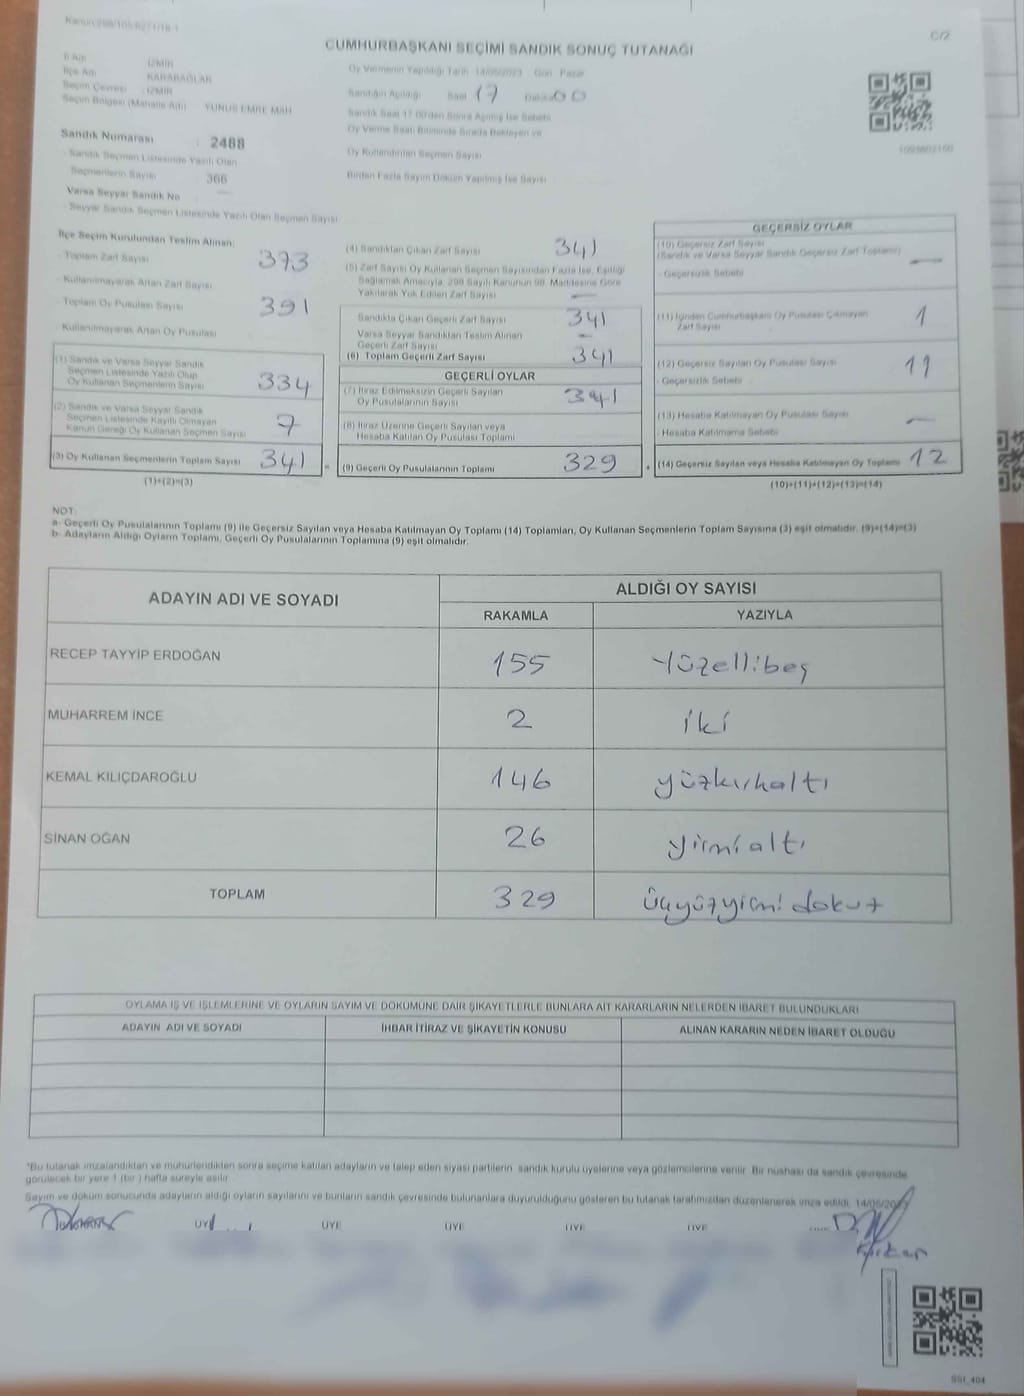 C/2
CUMHURBAŞKANI SEÇİMİ SANDIK SONUÇ TUTANAĞI
İl Adı İZMİR
İlçe Adı KARABAĞLAR
Seçim Çevresi : İZMİR
Seçim Bölgesi (Mahalle Adı) YUNUS EMRE MAH
Sandık Numarası : 2488
Sandık Seçmen Listesinde Yazılı Olan
Seçmenlerin Sayısı 366
Varsa Seyyar Sandık No
Seyyar Sandık Seçmen Listesinde Yazılı Olan Seçmen Sayısı
Oy Vermenin Yapıldığı Tarih 14/05/2023 Gün Pazar
Sandığın Açıldığı Saat 17 Dakika 00
Sandık Saat 17.00'den Sonra Açılmış İse Sebebi
Oy Verme Saati Bitiminde Sırada Bekleyen ve
Oy Kullandırılan Seçmen Sayısı
Birden Fazla Sayım Döküm Yapılmış İse Sayısı
İlçe Seçim Kurulundan Teslim Alınan;
- Toplam Zarf Sayısı 373
- Kullanılmayarak Artan Zarf Sayısı
- Toplam Oy Pusulası Sayısı 391
- Kullanılmayarak Artan Oy Pusulası
(1) Sandık ve Varsa Seyyar Sandık
Seçmen Listesinde Yazılı Olup
Oy Kullanan Seçmenlerin Sayısı 334
(2) Sandık ve Varsa Seyyar Sandık
Seçmen Listesinde Kayıtlı Olmayan
Kanun Gereği Oy Kullanan Seçmen Sayısı 7
(3) Oy Kullanan Seçmenlerin Toplam Sayısı 341 =
(1)+(2)=(3)
(4) Sandıktan Çıkan Zarf Sayısı 341
(5) Zarf Sayısı Oy Kullanan Seçmen Sayısından Fazla İse, Eşitliği
Sağlamak Amacıyla, 298 Sayılı Kanunun 98. Maddesine Göre
Yakılarak Yok Edilen Zarf Sayısı —
Sandıkta Çıkan Geçerli Zarf Sayısı 341
Varsa Seyyar Sandıktan Teslim Alınan
Geçerli Zarf Sayısı —
(6) Toplam Geçerli Zarf Sayısı 341
GEÇERLİ OYLAR
(7) İtiraz Edilmeksizin Geçerli Sayılan
Oy Pusulalarının Sayısı 341
(8) İtiraz Üzerine Geçerli Sayılan veya
Hesaba Katılan Oy Pusulası Toplamı
(9) Geçerli Oy Pusulalarının Toplamı 329 +
GEÇERSİZ OYLAR
(10) Geçersiz Zarf Sayısı
(Sandık ve Varsa Seyyar Sandık Geçersiz Zarf Toplamı) —
- Geçersizlik Sebebi
(11) İçinden Cumhurbaşkanı Oy Pusulası Çıkmayan
Zarf Sayısı 1
(12) Geçersiz Sayılan Oy Pusulası Sayısı 11
- Geçersizlik Sebebi
(13) Hesaba Katılmayan Oy Pusulası Sayısı —
- Hesaba Katılmama Sebebi
(14) Geçersiz Sayılan veya Hesaba Katılmayan Oy Toplamı 12
(10)+(11)+(12)+(13)=(14)
NOT:
a- Geçerli Oy Pusulalarının Toplamı (9) ile Geçersiz Sayılan veya Hesaba Katılmayan Oy Toplamı (14) Toplamları, Oy Kullanan Seçmenlerin Toplam Sayısına (3) eşit olmalıdır. (9)+(14)=(3)
b- Adayların Aldığı Oyların Toplamı, Geçerli Oy Pusulalarının Toplamına (9) eşit olmalıdır.
ADAYIN ADI VE SOYADI ALDIĞI OY SAYISI
RAKAMLA YAZIYLA
RECEP TAYYİP ERDOĞAN 155 Yüzellibeş
MUHARREM İNCE 2 iki
KEMAL KILIÇDAROĞLU 146 yüzkırkaltı
SİNAN OĞAN 26 yirmialtı
TOPLAM 329 üçyüzyirmi dokuz
OYLAMA İŞ VE İŞLEMLERİNE VE OYLARIN SAYIM VE DÖKÜMÜNE DAİR ŞİKAYETLERLE BUNLARA AİT KARARLARIN NELERDEN İBARET BULUNDUKLARI
ADAYIN ADI VE SOYADI İHBAR İTİRAZ VE ŞİKAYETİN KONUSU ALINAN KARARIN NEDEN İBARET OLDUĞU
*Bu tutanak imzalandıktan ve mühürlendikten sonra seçime katılan adayların ve talep eden siyasi partilerin sandık kurulu üyelerine veya gözlemcilerine verilir. Bir nüshası da sandık çevresinde
görülecek bir yere 1 (bir ) hafta süreyle asılır.
Sayım ve döküm sonucunda adayların aldığı oyların sayılarını ve bunların sandık çevresinde bulunanlara duyurulduğunu gösteren bu tutanak tarafımızdan düzenlenerek imza edildi. 14/05/2023
ÜYE ÜYE ÜYE ÜYE ÜYE
SSI_404